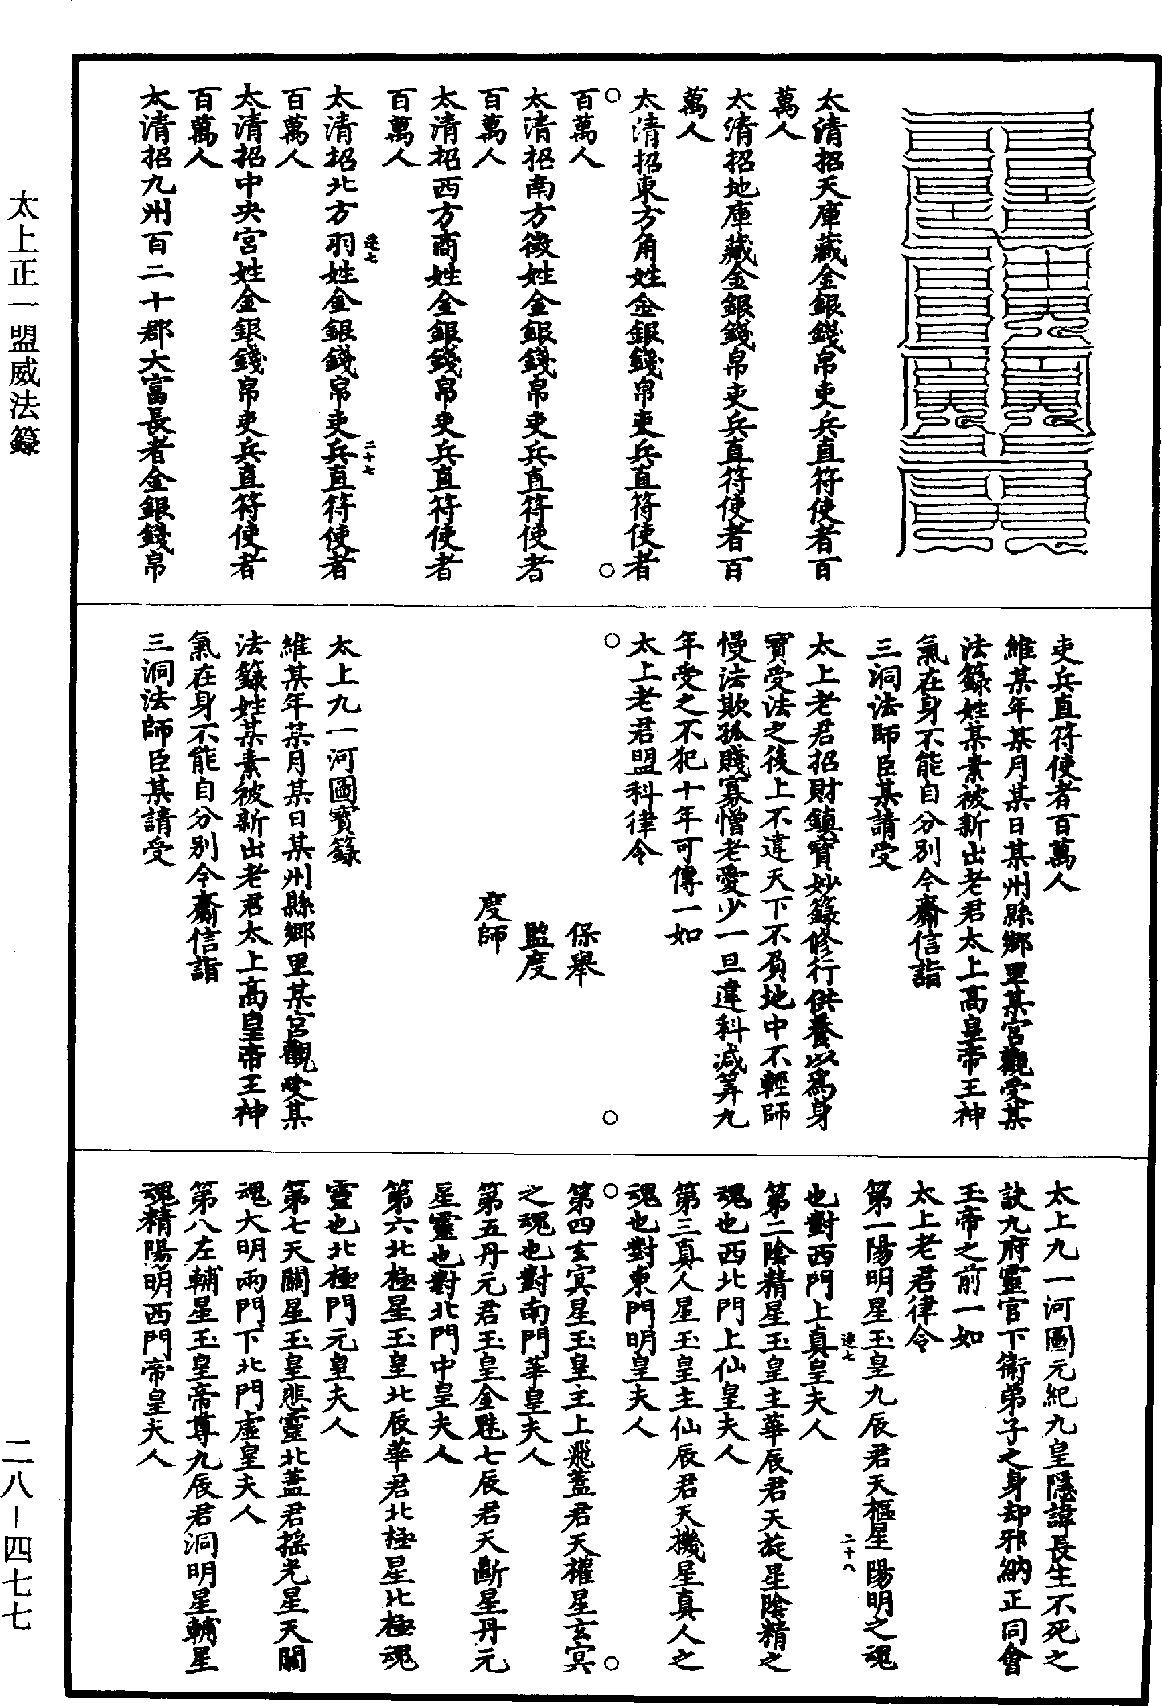 太上正一盟威法籙
太清招天庫藏金銀錢帛吏兵直符使者百
萬人
太清招地庫藏金銀錢帛吏兵直符使者百
萬人
太清招東方角姓金銀錢帛吏兵直符使者
百萬人
太清招南方徵姓金銀錢帛吏兵直符使者
百萬人
太清招西方商姓金銀錢帛吏兵直符使者
百萬人
太清招北方羽姓金銀錢帛吏兵直符使者
逹七
二十七
百萬人
太清招中央宮姓金銀錢帛吏兵直符使者
百萬人
太清招九州百二十郡大富長者金銀錢帛
吏兵直符使者百萬人
維某年某月某日某州縣鄉里某宮觀受某
法籙姓某素被新出老君太上高皇帝王神
氣在身不能自分別今齋信詣
三洞法師臣某請受
太上老君招財鎮寶妙籙修行供養以爲身
寶受法之後上不違天下不負地中不輕師
慢法欺孤賤寡憎老愛少一旦違科減筭九
年受之不犯十年可傳一如
太上老君盟科律令
保舉
監度
度師
太上九一河圖寶籙
維某年某月某日某州縣鄉里某宮觀受某
法籙姓某素被新出老君太上高皇帝王神
氣在身不能自分別今齋信詣
三洞法師臣某請受
太上九一河圖元紀九皇隱諱長生不死之
訣九府靈官下衛弟子之身却邪納正同會
玉帝之前一如
太上老君律令
第一陽明星玉皇九辰君天樞星陽明之魂
逹七
二十八
也對西門上真皇夫人
第二陰精星玉皇主華辰君天旋星陰精之
魂也西北門上仙皇夫人
第三真人星玉皇主仙辰君天機星真人之
魂也對東門明皇夫人
第四玄冥星玉皇主上飛蓋君天權星玄冥
之魂也對南門華皇夫人
第五丹元君玉皇金魁七辰君天斷星丹元
星靈也對北門中皇夫人
第六北極星玉皇北辰華君北極星北極魂
靈也北極門元皇夫人
第七天關星玉皇悲靈北蓋君搖光星天關
魂大明兩門下北門虛皇夫人
第八左輔星玉皇帝尊九辰君洞明星輔星
魂精陽明西門帝皇夫人
二八－四七七